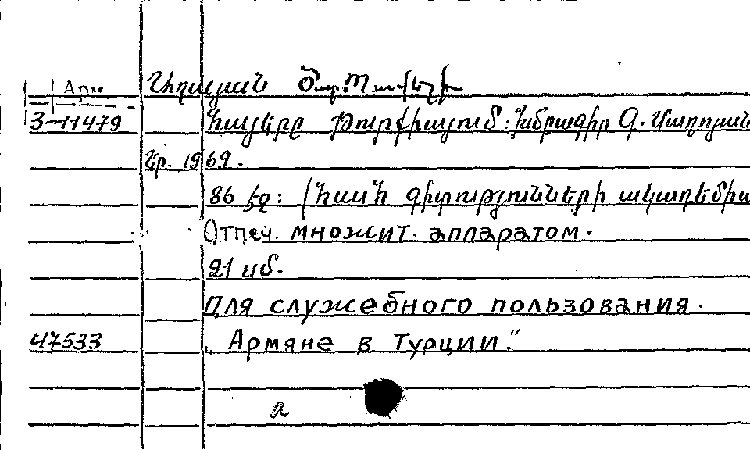 Арм
3-11479
Հայերը Թուրքիայում: Խմբագիր Գ.
Եր. 1969.
86 էջ: (ՀՍՍՀ գիտությունների ակադեմիա
Отпеч. множит. аппаратом.
21 սմ.
Для служебного пользования.
47533 „Армяне в Турции."